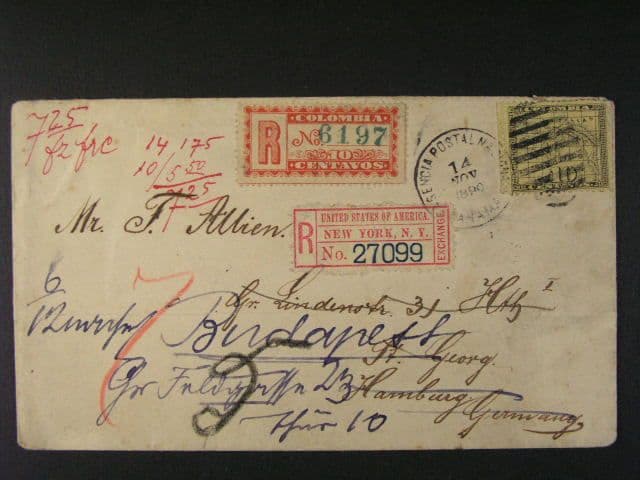 7 25
fz frc
14 175
10/5 50
7 25
7
COLOMBIA
R No. 6197
10
CENTAVOS
AGENCIA POSTAL NACIONAL
14
NOV
PANAMA
COLOMBIA
10
Mr. F. Allien.
UNITED STATES OF AMERICA.
NEW YORK, N. Y.
R No. 27099
EXCHANGE
6
Gr. Lindenstr. 31 Htz I
Budapest
St. Georg.
Gr Feldgasse 23
Hamburg
Germany
thür 10
7